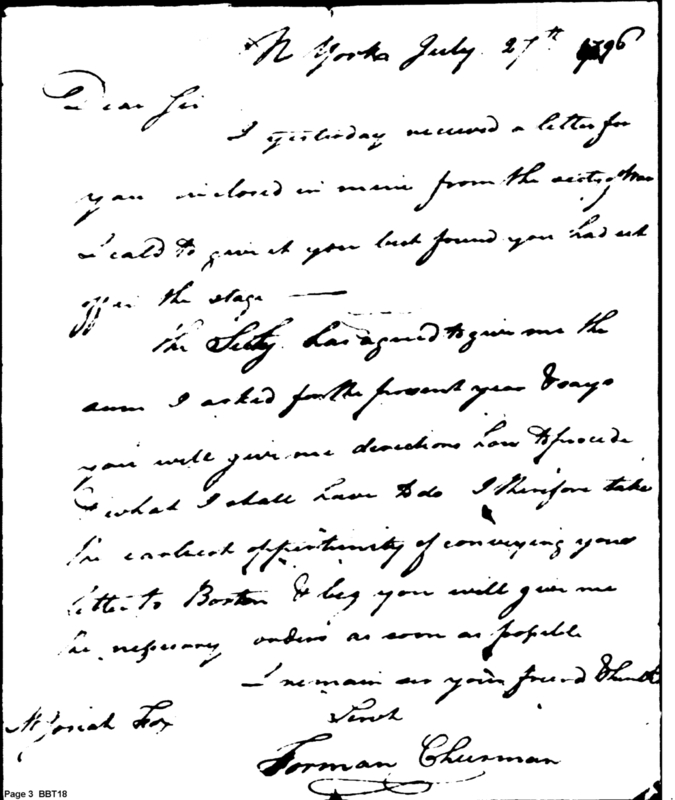 N York July 27th 1796
Dear Sir
I yesterday received a letter for
you inclosed in mine from the secty of War
I cald to give it you but found you had set
off in the stage —
The Secty has agreed to give me the
sum I asked for the present year & says
you will give me directions how to procede
& what I shall have to do I therefore take
the earliest oppertunity of conveying your
letter to Boston & beg you will give me
the nessesary orders as soon as possible
I remain sir your friend & humble
Servt
Mr Josiah Fox
Forman Cheesman
Page 3 BBT18